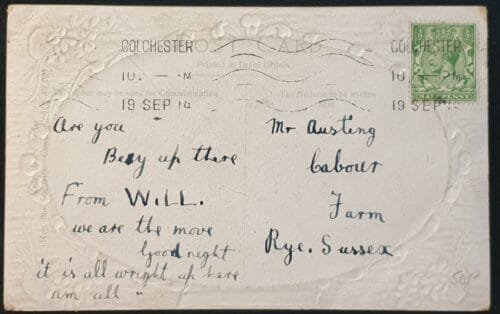 POST CARD
Printed in Great Britain.
COLCHESTER
10. – M
19 SEP 14
COLCHESTER
10. PM
19 SEP 14
HALF PENNY
This space may be used for Communication
The Address to be written
Are you
Bey up there
From WILL.
we are the move
Good night
it is all wright up here
am all
Mr Austing
Cabour
Farm
Rye. Sussex